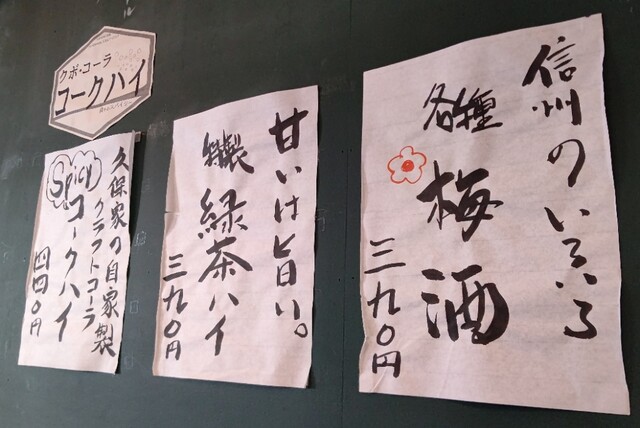 信州のいろいろ
各種
梅酒
三九〇円
甘いは旨い。
特製
緑茶ハイ
三九〇円
クボ・コーラ
コークハイ
久保家の自家製
クラフトコーラ
Spicy
コークハイ
四四〇円